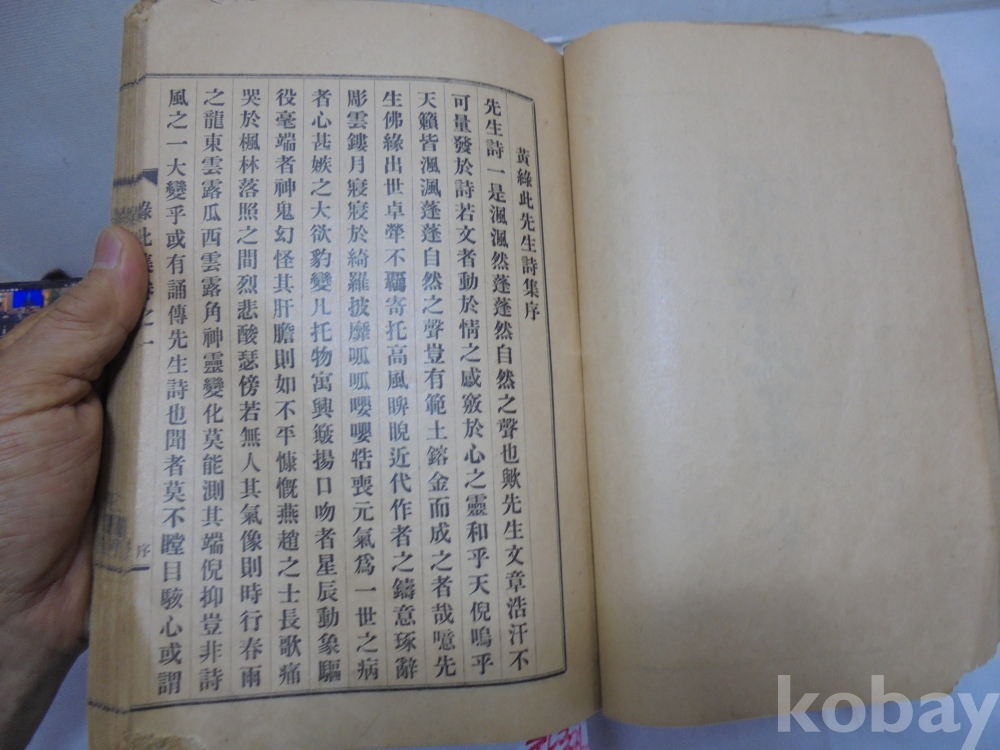 黃綠此先生詩集序
先生詩一是渢渢然蓬蓬然自然之聲也歟先生文章浩汗不
可量發於詩若文者動於情之感竅於心之靈和乎天倪嗚乎
天籟皆渢渢蓬蓬自然之聲豈有範土鎔金而成之者哉噫先
生佛緣出世卓犖不羈寄托高風睥睨近代作者之鑄意琢辭
彫雲鏤月寢寢於綺羅披靡呱呱嚶嚶牿喪元氣爲一世之病
者心甚嫉之大欲豹變凡托物寓興簸揚口吻者星辰動象驅
役毫端者神鬼幻怪其肝膽則如不平慷慨燕趙之士長歌痛
哭於楓林落照之間烈悲酸瑟傍若無人其氣像則時行春雨
之龍東雲露瓜西雲露角神靈變化莫能測其端倪抑豈非詩
風之一大變乎或有誦傳先生詩也聞者莫不瞠目駭心或謂
綠此集卷之一
序
kobay